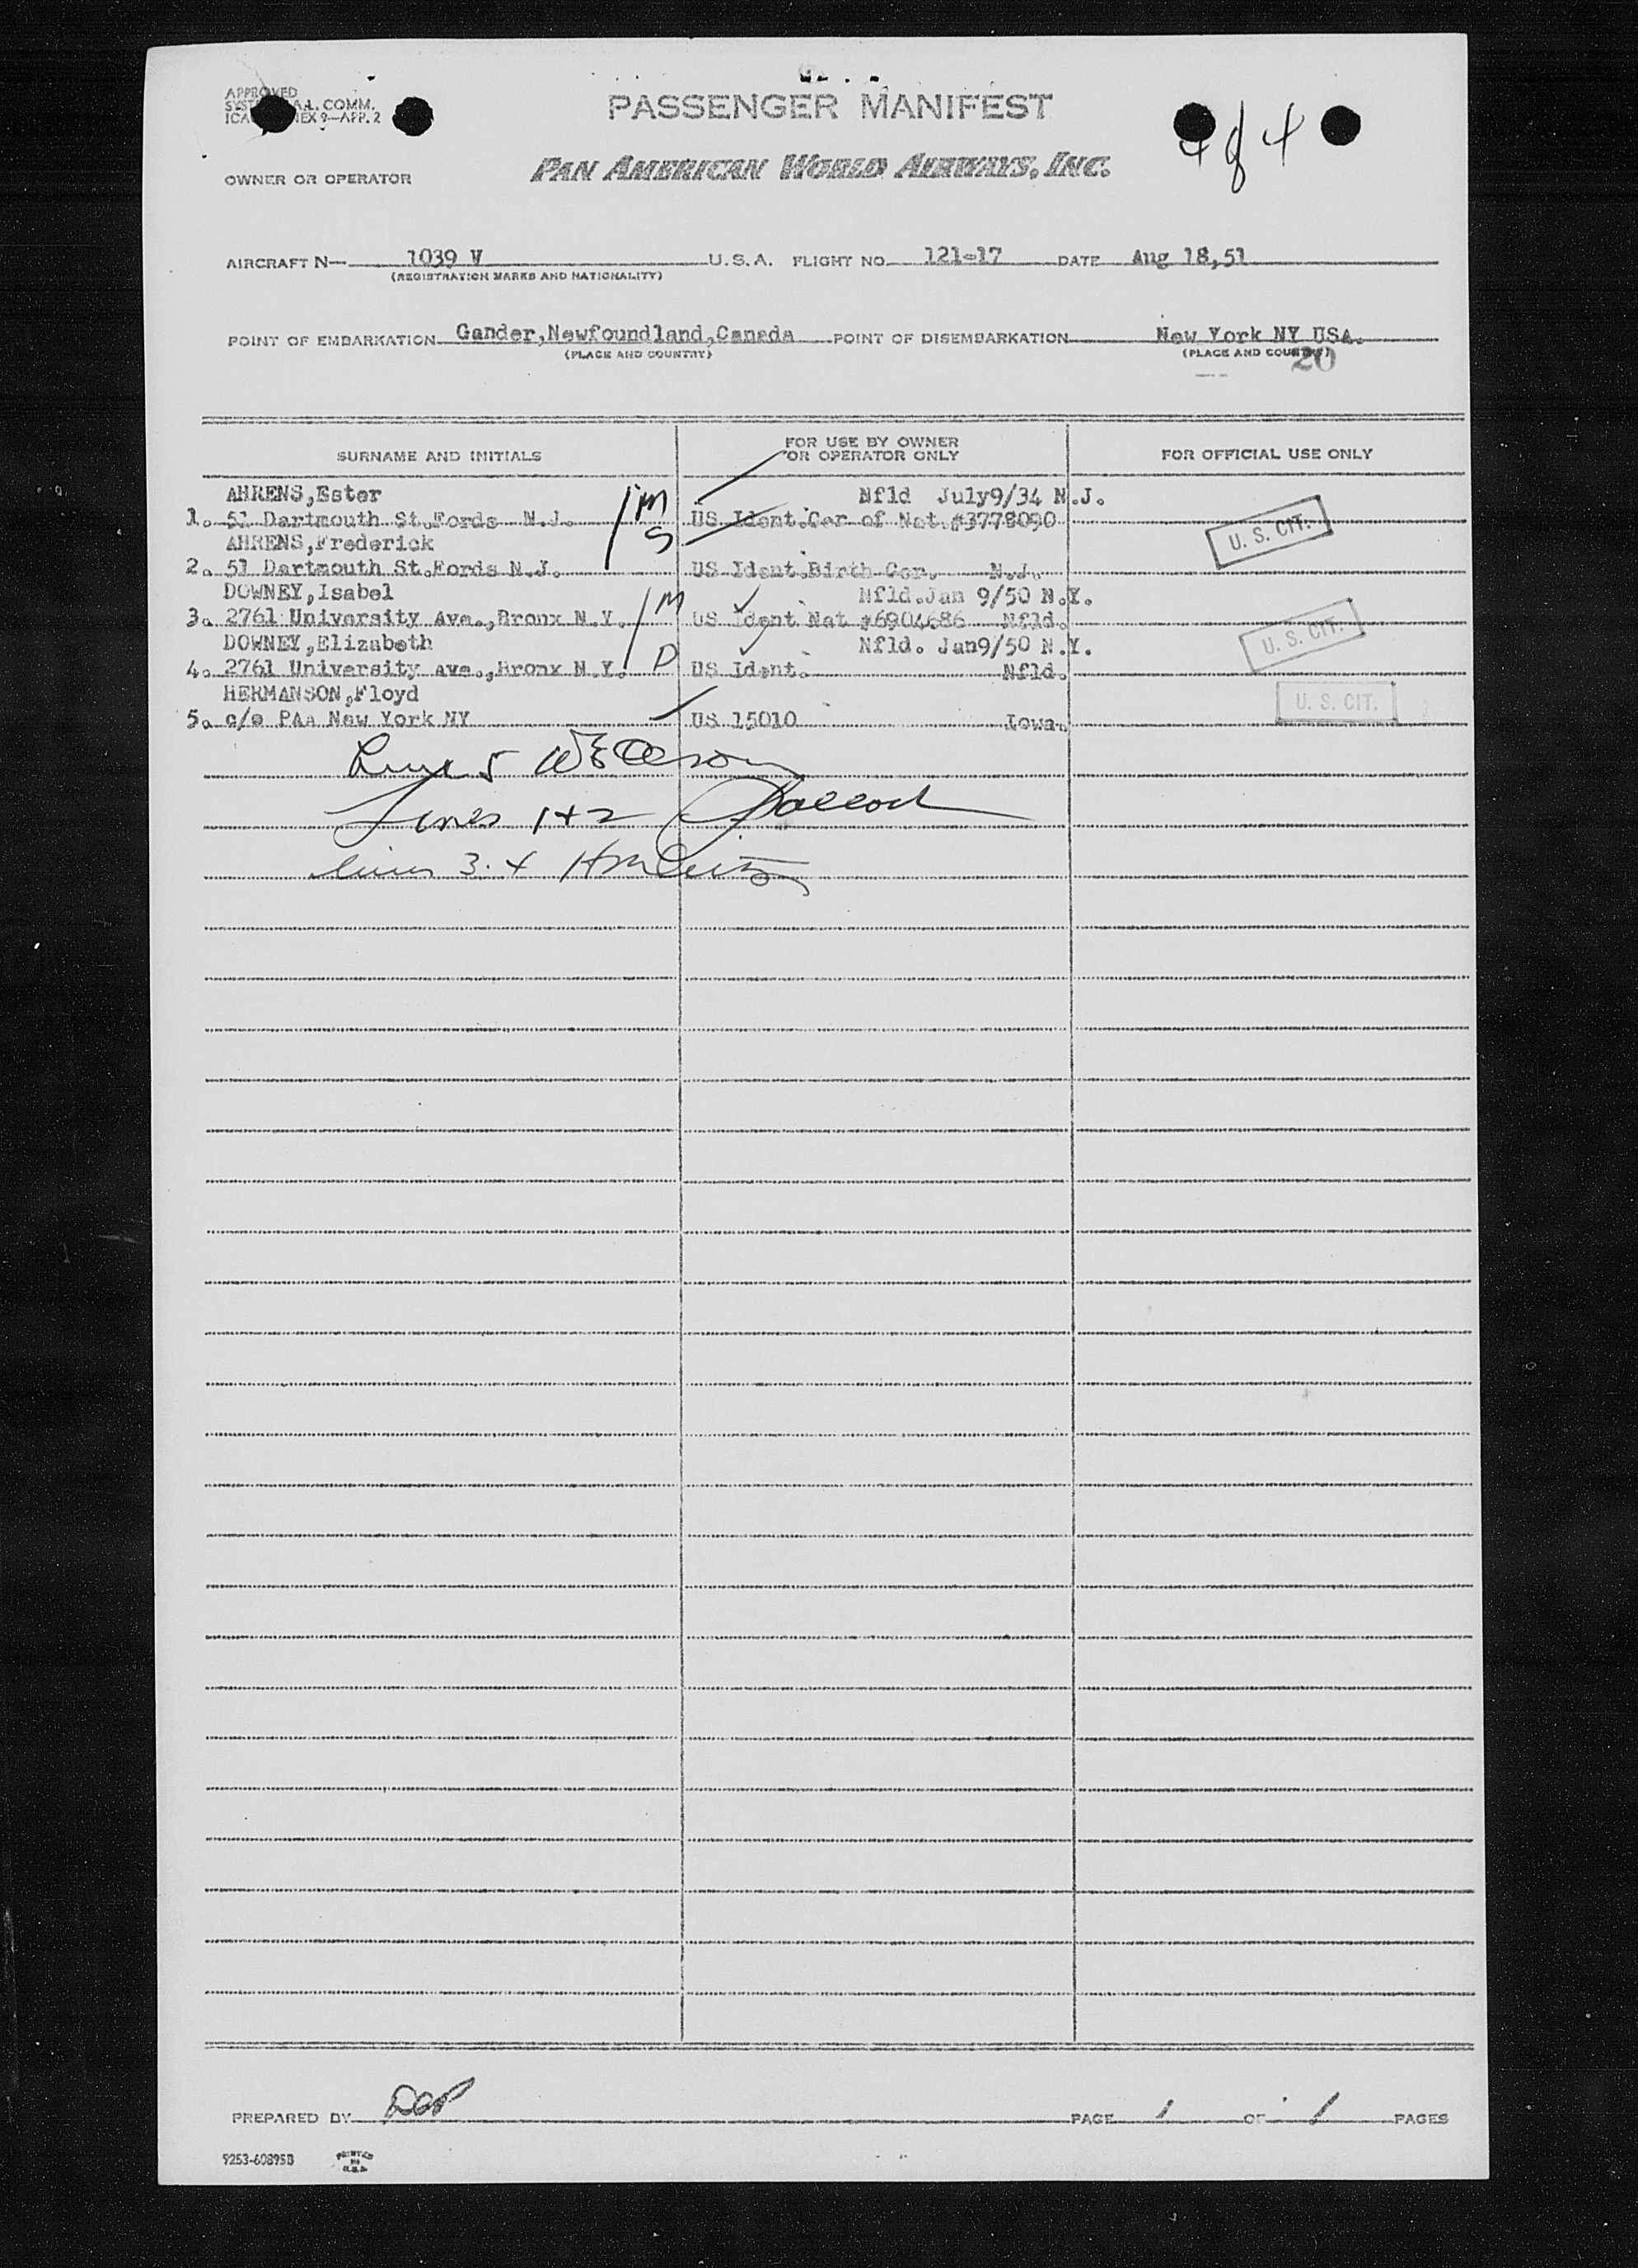 APPROVED
A.L. COMM.
9-APP. 2
PASSENGER MANIFEST
4 of 4
OWNER OR OPERATOR
PAN AMERICAN WORLD AIRWAYS, INC.
AIRCRAFT N— 1039 V U.S.A. FLIGHT NO. 121-17 DATE Aug 18,51
(REGISTRATION MARKS AND NATIONALITY)
POINT OF EMBARKATION Gander,Newfoundland,Canada POINT OF DISEMBARKATION New York NY USA.
(PLACE AND COUNTRY) (PLACE AND COUNTRY)
20
SURNAME AND INITIALS FOR USE BY OWNER OR OPERATOR ONLY FOR OFFICIAL USE ONLY
AHRENS,Ester M Nfld July9/34 N.J.
1. 51 Dartmouth St.Fords N.J. US Ident.Cer of Nat.#3778090 U. S. CIT.
AHRENS,Frederick S
2. 51 Dartmouth St.Fords N.J. US Ident.Birth Cer. N.J.
DOWNEY,Isabel M Nfld.Jan 9/50 N.Y.
3. 2761 University Ave.,Bronx N.Y. US Ident Nat #6904686 Nfld. U. S. CIT.
DOWNEY,Elizabeth Nfld. Jan9/50 N.Y.
4. 2761 University Ave.,Bronx N.Y. D US Ident. Nfld.
HERMANSON,Floyd
5. c/o PAA New York NY US 15010 Iowa. U. S. CIT.
Line 5
Lines 1+2
lines 3.4
PREPARED BY PAGE 1 OF 1 PAGES
9253-60895B PRINTED IN U.S.A.